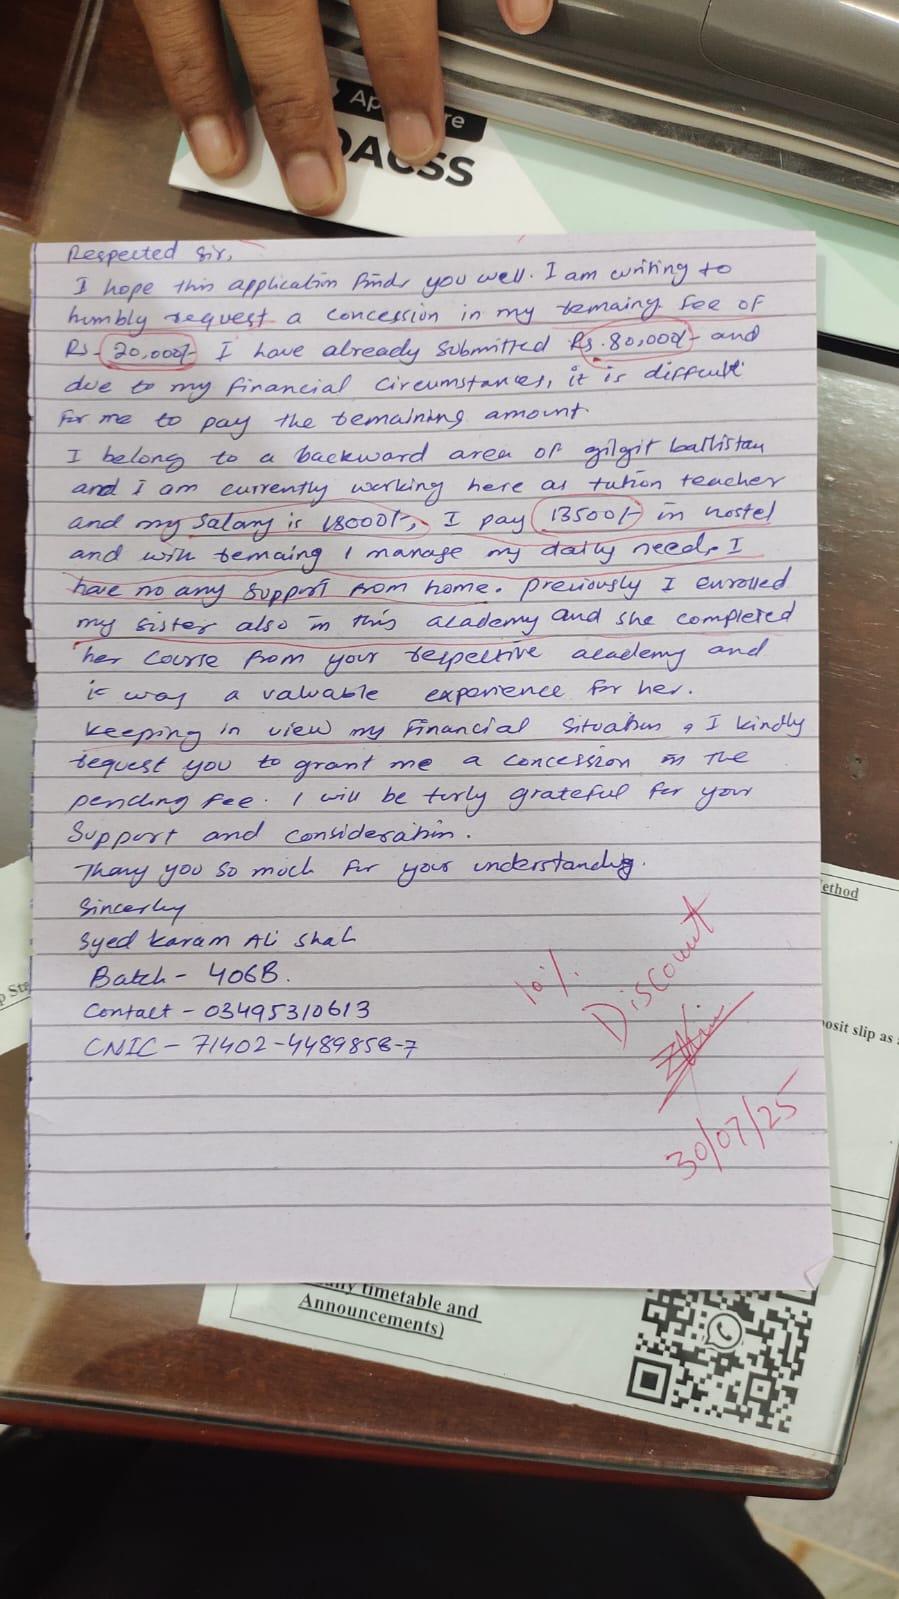 Ap re
DACSS
Respected Sir,
I hope this application finds you well. I am writing to
humbly request a concession in my remaing fee of
Rs. 20,000/- I have already submitted Rs. 80,000/- and
due to my financial circumstances, it is difficult
for me to pay the remaining amount.
I belong to a backward area of gilgit baltistan
and I am currently working here as tution teacher
and my salary is 18000/-, I pay 13500/- in hostel
and with remaing I manage my daily needs I
have no any support from home. previously I enrolled
my sister also in this academy and she completed
her course from your respective academy and
it was a valuable experience for her.
keeping in view my financial situation, I kindly
request you to grant me a concession in the
pending fee. I will be turly grateful for your
support and consideration.
Thany you so much for your understanding.
Sincerly
Syed Karam Ali Shah
Batch - 406B.
Contact - 03495310613
CNIC - 71402-4489858-7
10%
Discount
30/07/25
ethod
p Ste
osit slip as
timetable and
Announcements)